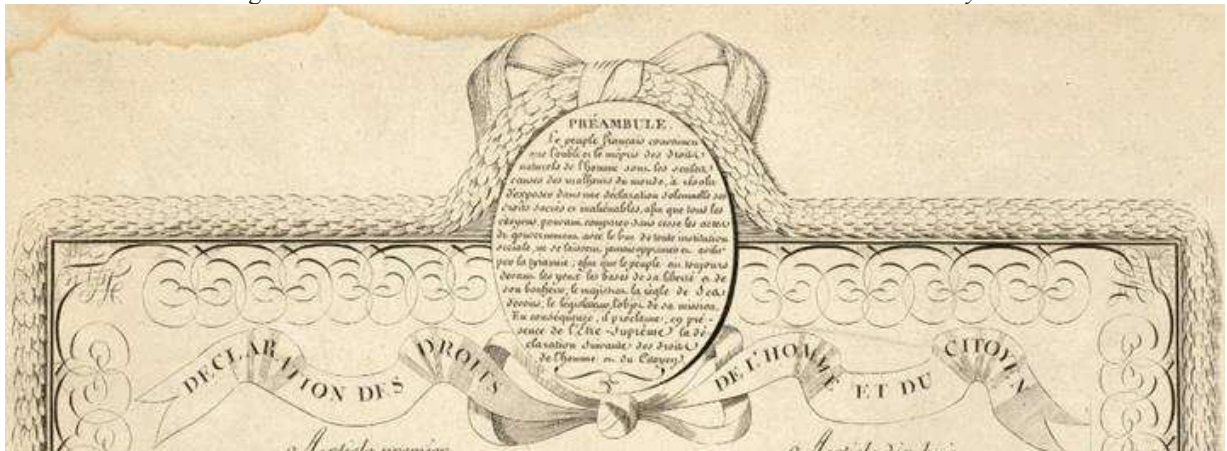 PRÉAMBULE.
Le peuple français convaincu
que l'oubli et le mépris des droits
naturels de l'homme sont les seules
causes des malheurs du monde, a résolu
d'exposer dans une déclaration solemnelle ses
droits sacrés et inaliénables, afin que tous les
citoyens, pouvant comparer sans cesse les actes
du gouvernement avec le but de toute institution
sociale, ne se laissent jamais opprimer et avilir
par la tyrannie; afin que le peuple ait toujours
devant les yeux les bases de sa liberté et de
son bonheur, le magistrat la règle de ses
devoirs, le législateur l'objet de sa mission.
En conséquence, il proclame, en pré-
sence de l'Être-Suprême la dé-
claration suivante des droits
de l'homme et du Citoyen.
DECLARATION DES DROITS DE L'HOMME ET DU CITOYEN
Article premier
Article